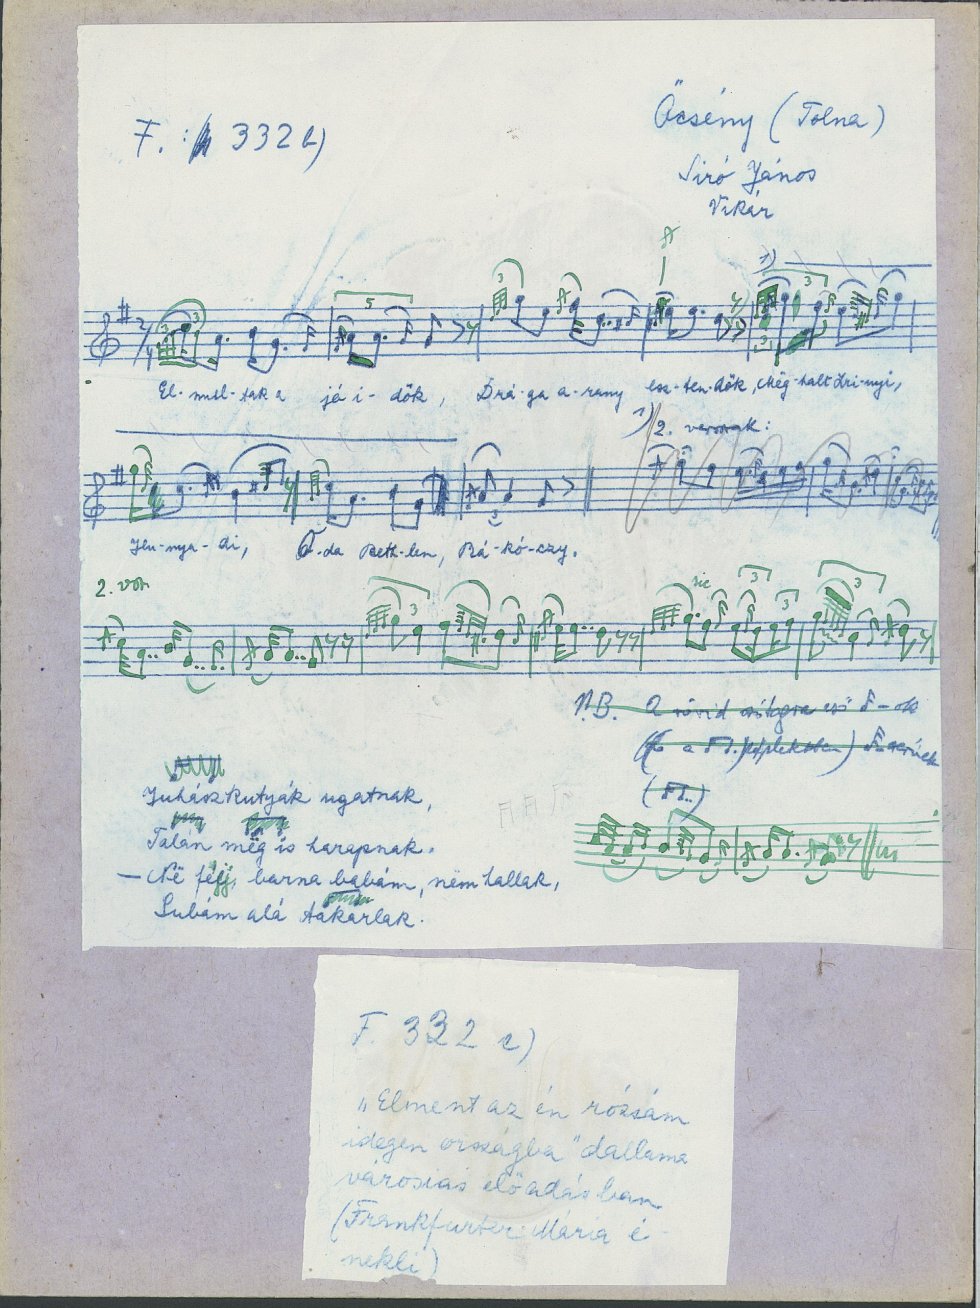 F. : 332 b)
Őcsény (Tolna)
Siró János
Vikár
1)
El-múl-tak a jó i-dők, Drá-ga a-rany esz-ten-dők, Még-halt Zri-nyi,
1) 2. versnak:
Hu-nya-di, O-da Beth-len, Rá-kó-czy.
2. vsr.
sic
N.B. A rövid
Juhászkutyák ugatnak,
Talán még is harapnak.
— Në félj, barna babám, nem hallak,
Subám alá takarlak.
F. 332 c)
„Elment az én rózsám
idegen országba" dallama
városias előadásban
(Frankfurter Mária é-
nekli)